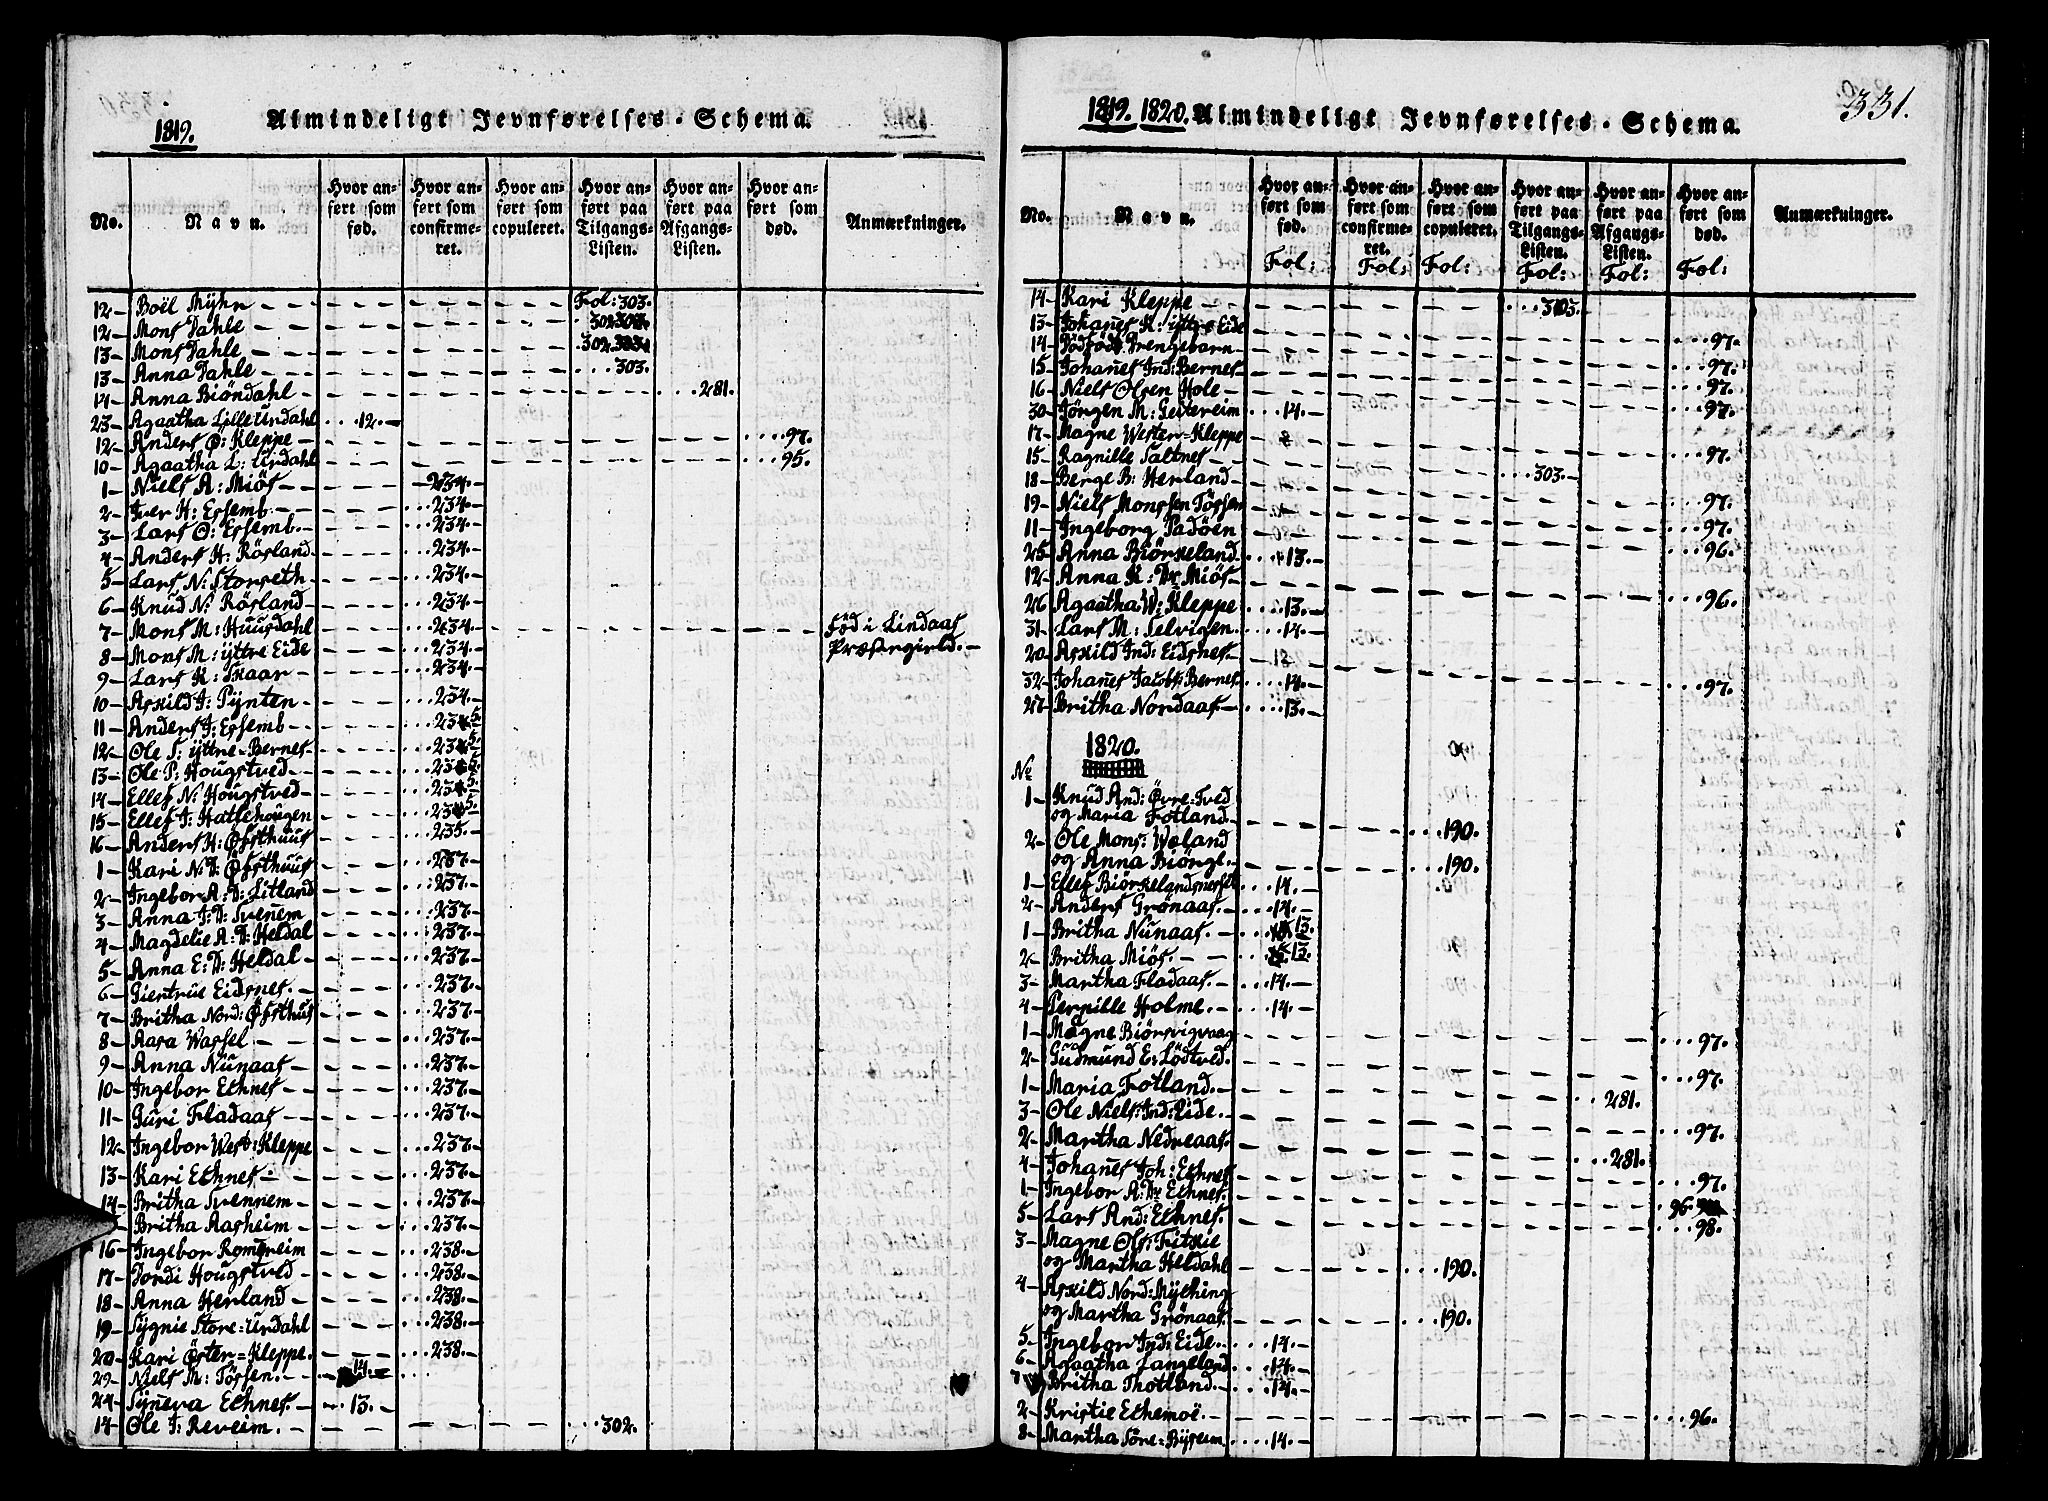 1819. Almindeligt Jevnførelses-Schema.
No. Navn. Hvor anført som fød. Hvor anført som confirmeret. Hvor anført som copuleret. Hvor anført paa Tilgangs-Listen. Hvor anført paa Afgangs-Listen. Hvor anført som død. Anmærkninger.
12 Boël Myhr Fol: 303.
12 Mons Dahle 302
13 Mons Dahle 302
13 Anna Dahle 303.
14 Anna Biöndahl 281.
23 Agaatha Lille Urdahl 12.
12 Anders O: Kleppe 97.
10 Agaatha L: Urdahl 95.
1 Niels A: Miös 234.
2 Iver H: Essemb 234.
3 Lars O: Essemb 234.
4 Anders H: Rösland 234.
5 Lars N: Storseth 234.
6 Knud N: Rösland 234.
7 Mons M: Huusdahl 234. Föd i Lindaas
8 Mons M: yttre Eide 234. Præstergield.
9 Lars K: Skaar 234.
10 Askild J: Pynten 234.
11 Anders J: Essemb 235
12 Ole S: yttre-Bernes 235
13 Ole P: Hougstved 235
14 Ellef N: Hougstved 235
15 Ellef J: Hattehougen 235
16 Anders H: Össthuus 235.
1 Kari N: D: Össthuus 237.
2 Ingebor A: D: Litland 237.
3 Anna J: D: Svenem 237.
4 Magdelie A: D: Heldal 237.
5 Anna E: D: Heldal 237.
6 Giertrue Eidsnes. 237.
7 Britha Nord: Össthus 237.
8 Aasa Wassel 237.
9 Anna Nunaas 237.
10 Ingebor Echnes 237.
11 Guri Fladaas 237.
12 Ingebor West: Kleppe 237.
13 Kari Echnes 237.
14 Britha Svennem 237.
Britha Aasheim 237.
16 Ingebor Romereim 238.
17 Dordi Hougstved 238.
18 Anna Herland 238.
19 Sygnie Store-Urdahl 238.
20 Kari Öster-Kleppe. 238.
29 Niels M: Tössen. 14.
24 Syneva Echnes. 13.
14 Ole J: Reveim. 302.
1819. 1820. Almindeligt Jevnførelses-Schema. 331.
No. Navn. Hvor anført som fød. Fol: Hvor anført som confirmeret. Fol: Hvor anført som copuleret. Fol: Hvor anført paa Tilgangs-Listen. Fol: Hvor anført paa Afgangs-Listen. Fol: Hvor anført som død. Fol: Anmærkninger.
14 Kari Kleppe 303.
13 Johanes K: yttre Eide 97.
14 Dödfödt Drengebarn 97.
15 Johanes Ind: Bernes 97.
16 Niels Olsen Hole 97.
30 Jörgen M: Seitereim 14.
17 Magne Wester-Kleppe 97.
15 Ragnille Saltnes 303.
18 Berge B: Herland 97.
19 Niels Monssen Tössen 97.
11 Ingeborg Padöen 96.
25 Anna Biörkeland 13.
12 Anna K: Dr Miös 96.
26 Agaatha W: Kleppe 13.
31 Lars M: Selvigen 14.
20 Askild Ind: Eidsnes 97.
32 Johanes Jacobs: Bernes. 14.
27 Britha Nordaas. 13.
1820.
No
1 Knud And: Övre-Tved
og Maria Fotland 190.
2 Ole Mons: Woland
og Anna Biörge. 190.
1 Ellef Biörkelandsnesset 14.
2 Anders Grönaas. 14.
1 Britha Nunaas. 13.
2 Britha Miös. 13.
3 Martha Fladaas. 14.
4 Pernille Holme. 14.
1 Magne Biörsvigvaag 97.
2 Gudmund E: Lödtved. 97.
1 Maria Fotland. 281.
3 Ole Niels: Ind: Eide. 97.
2 Martha Nedreaas. 281.
4 Johanes Joh: Echnes 97.
1 Ingebor A: Dr Echnes. 96
5 Lars And: Echnes. 98.
3 Magne Ols: Fitskie
og Martha Heldahl 190.
4 Askild Nord: Myching
og Martha Grönaas. 190.
5 Ingebor Ind: Eide. 14.
6 Agaatha Langeland 14.
7 Britha Thotland. 14.
2 Kristie Echemoe. 96.
8 Martha Söre-Byseim 14.